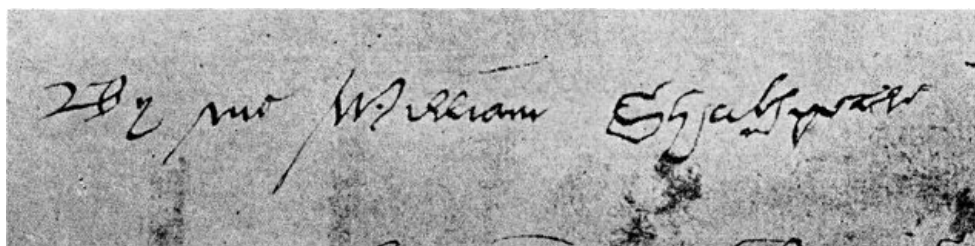 By me William Shakspeare